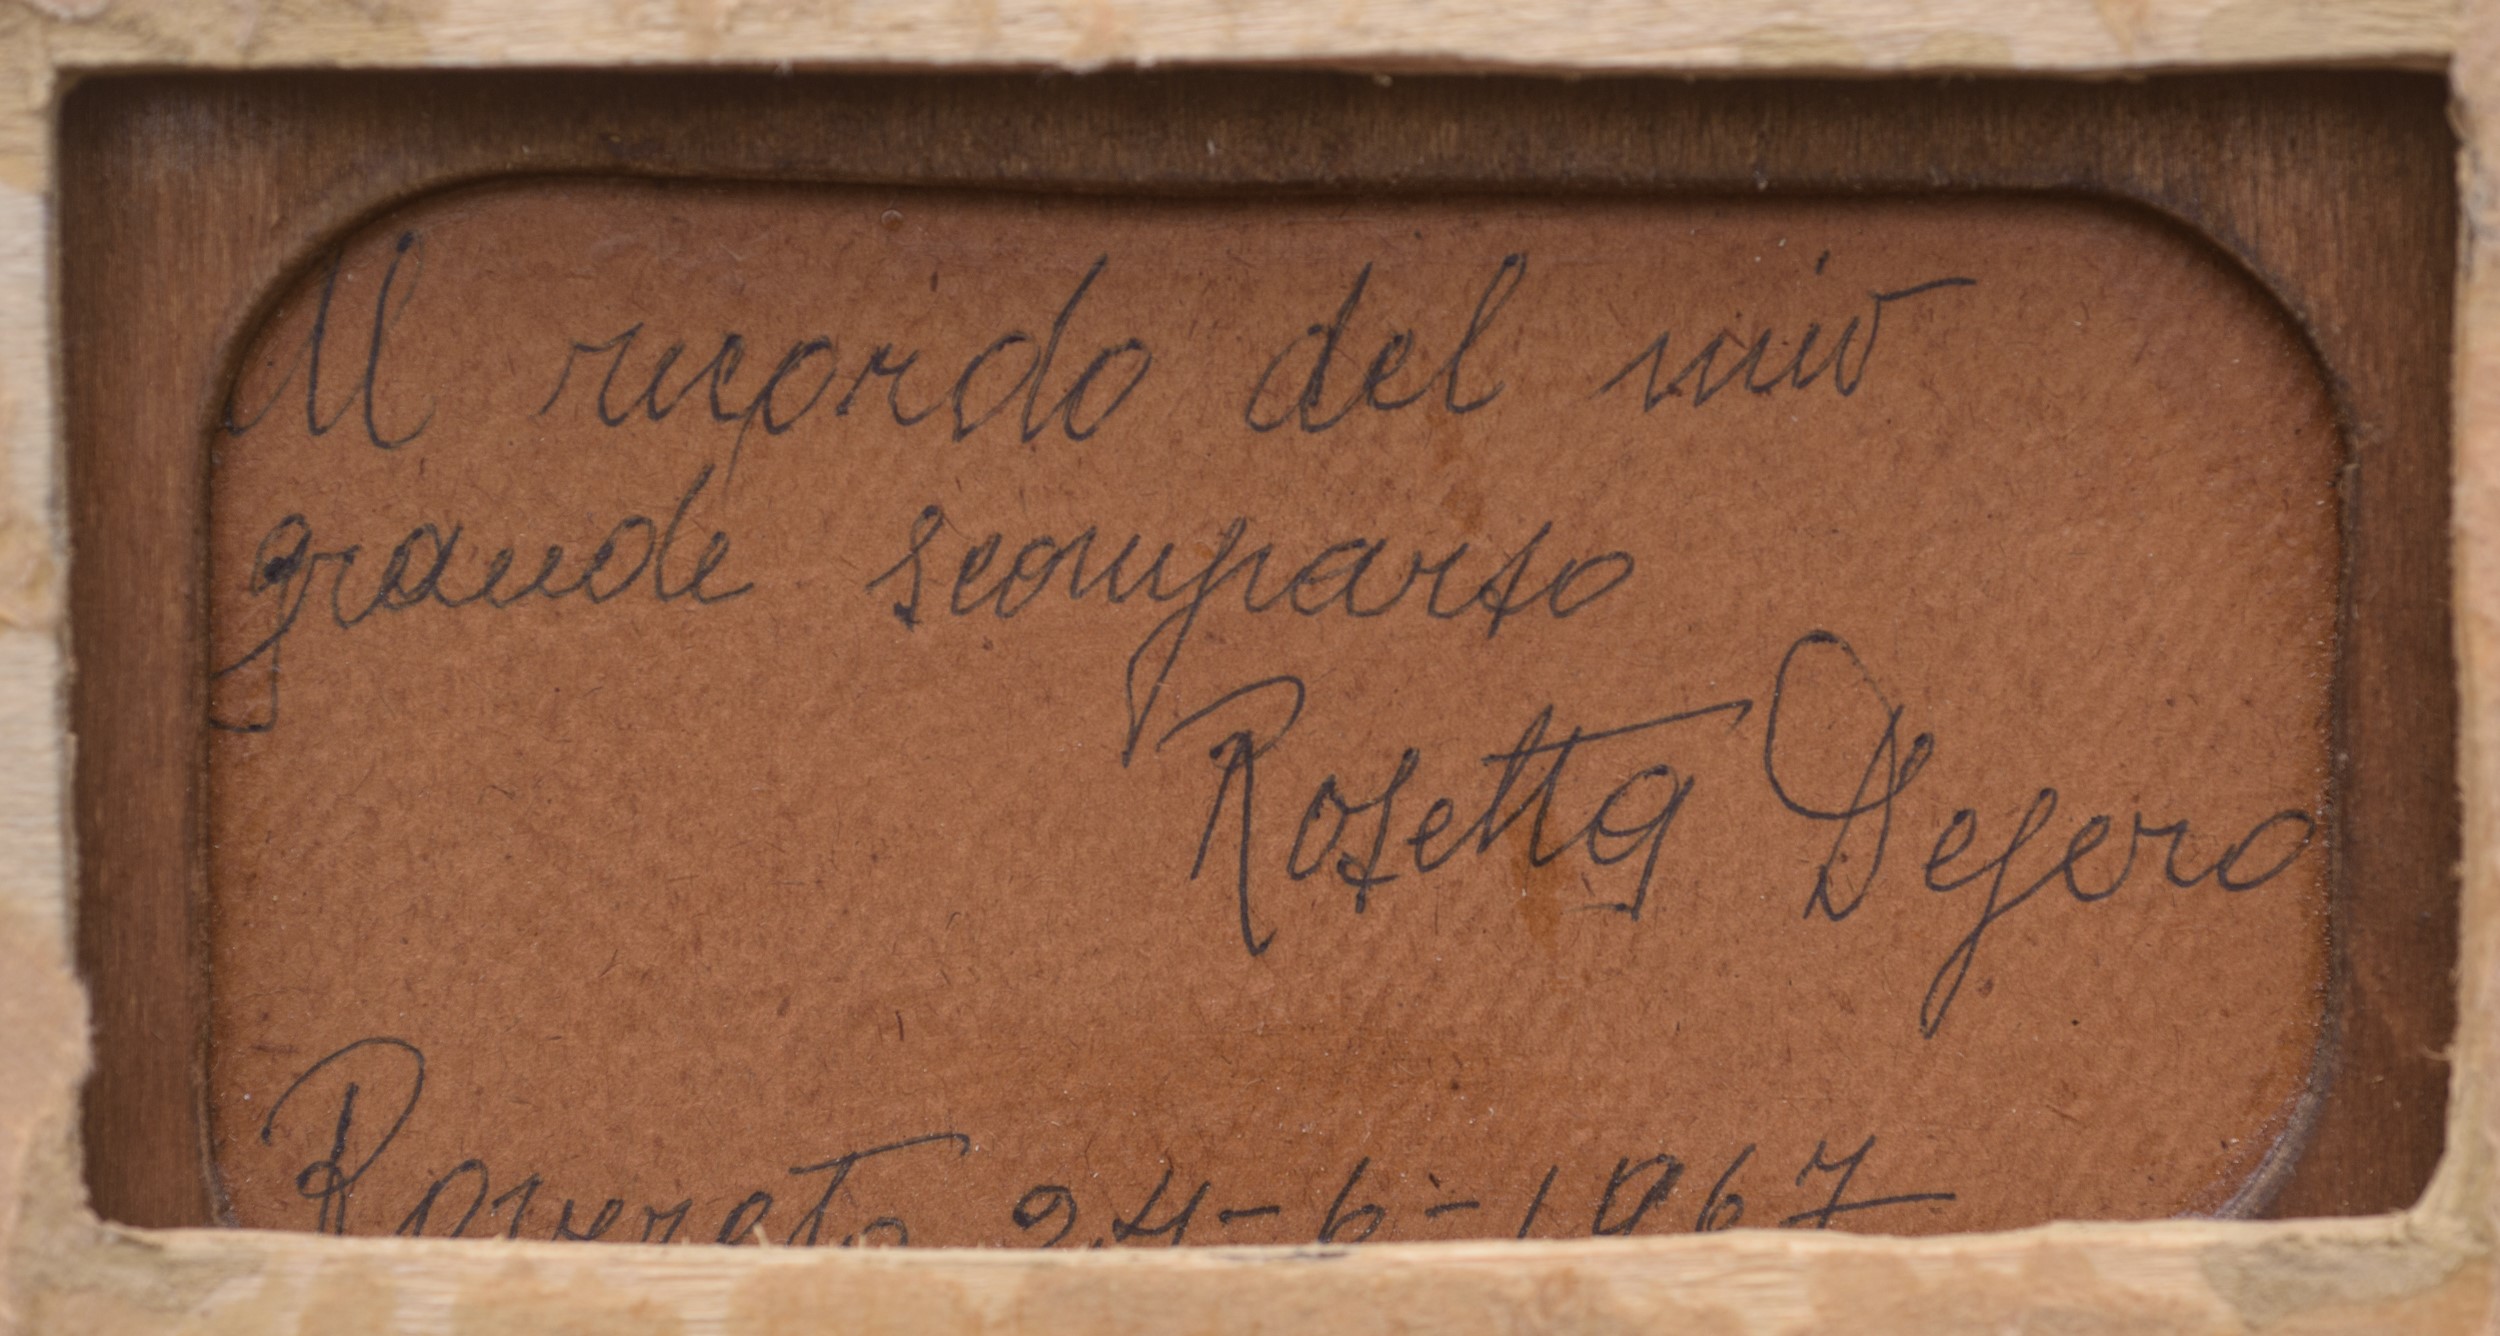 Al ricordo del mio
grande scomparso
Rosetta Depero
Rovereto 24-6-1967